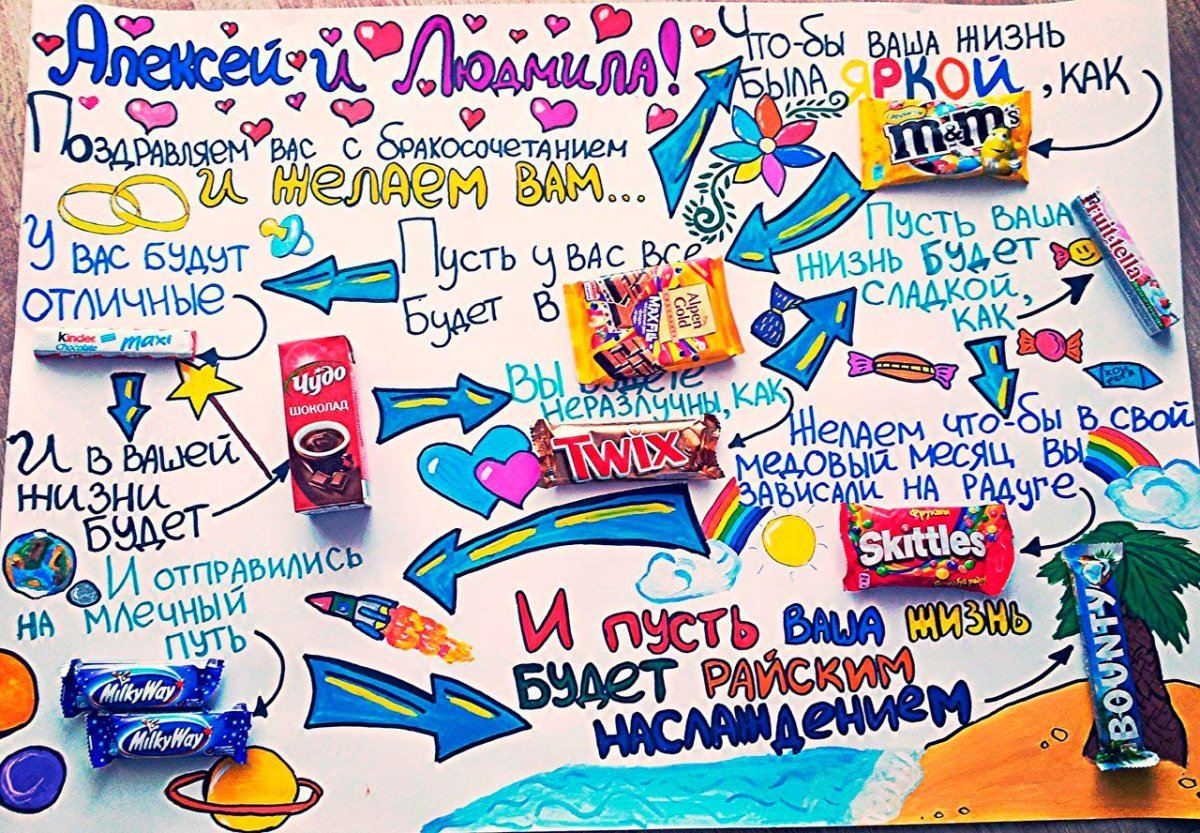 Алексей и Людмила!
Поздравляем вас с бракосочетанием
и желаем вам...
Что-бы ваша жизнь
была яркой, как
m&m's
Пусть у вас все
будет в
Alpen Gold
MAXFUN
У вас будут
отличные
kinder
Chocolate
maxi
И в вашей
жизни
будет
Чудо
ШОКОЛАД
Вы будете
неразлучны, как
TWIX
Пусть ваша
жизнь будет
сладкой,
как
Fruittella
Желаем что-бы в свой
медовый месяц вы
зависали на радуге
Фрукты
Skittles
И отправились
на млечный
путь
MilkyWay
MilkyWay
И пусть ваша жизнь
будет райским
наслаждением
BOUNTY